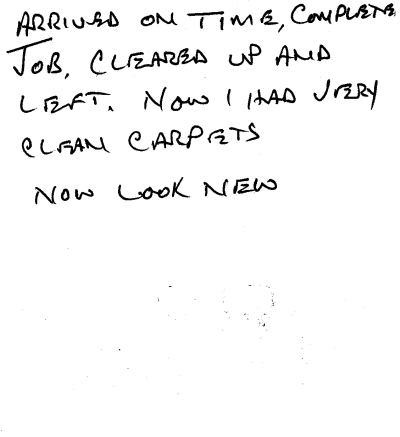 ARRIVED ON TIME, COMPLETE
JOB, CLEARED UP AND
LEFT. NOW I HAD VERY
CLEAN CARPETS
NOW LOOK NEW